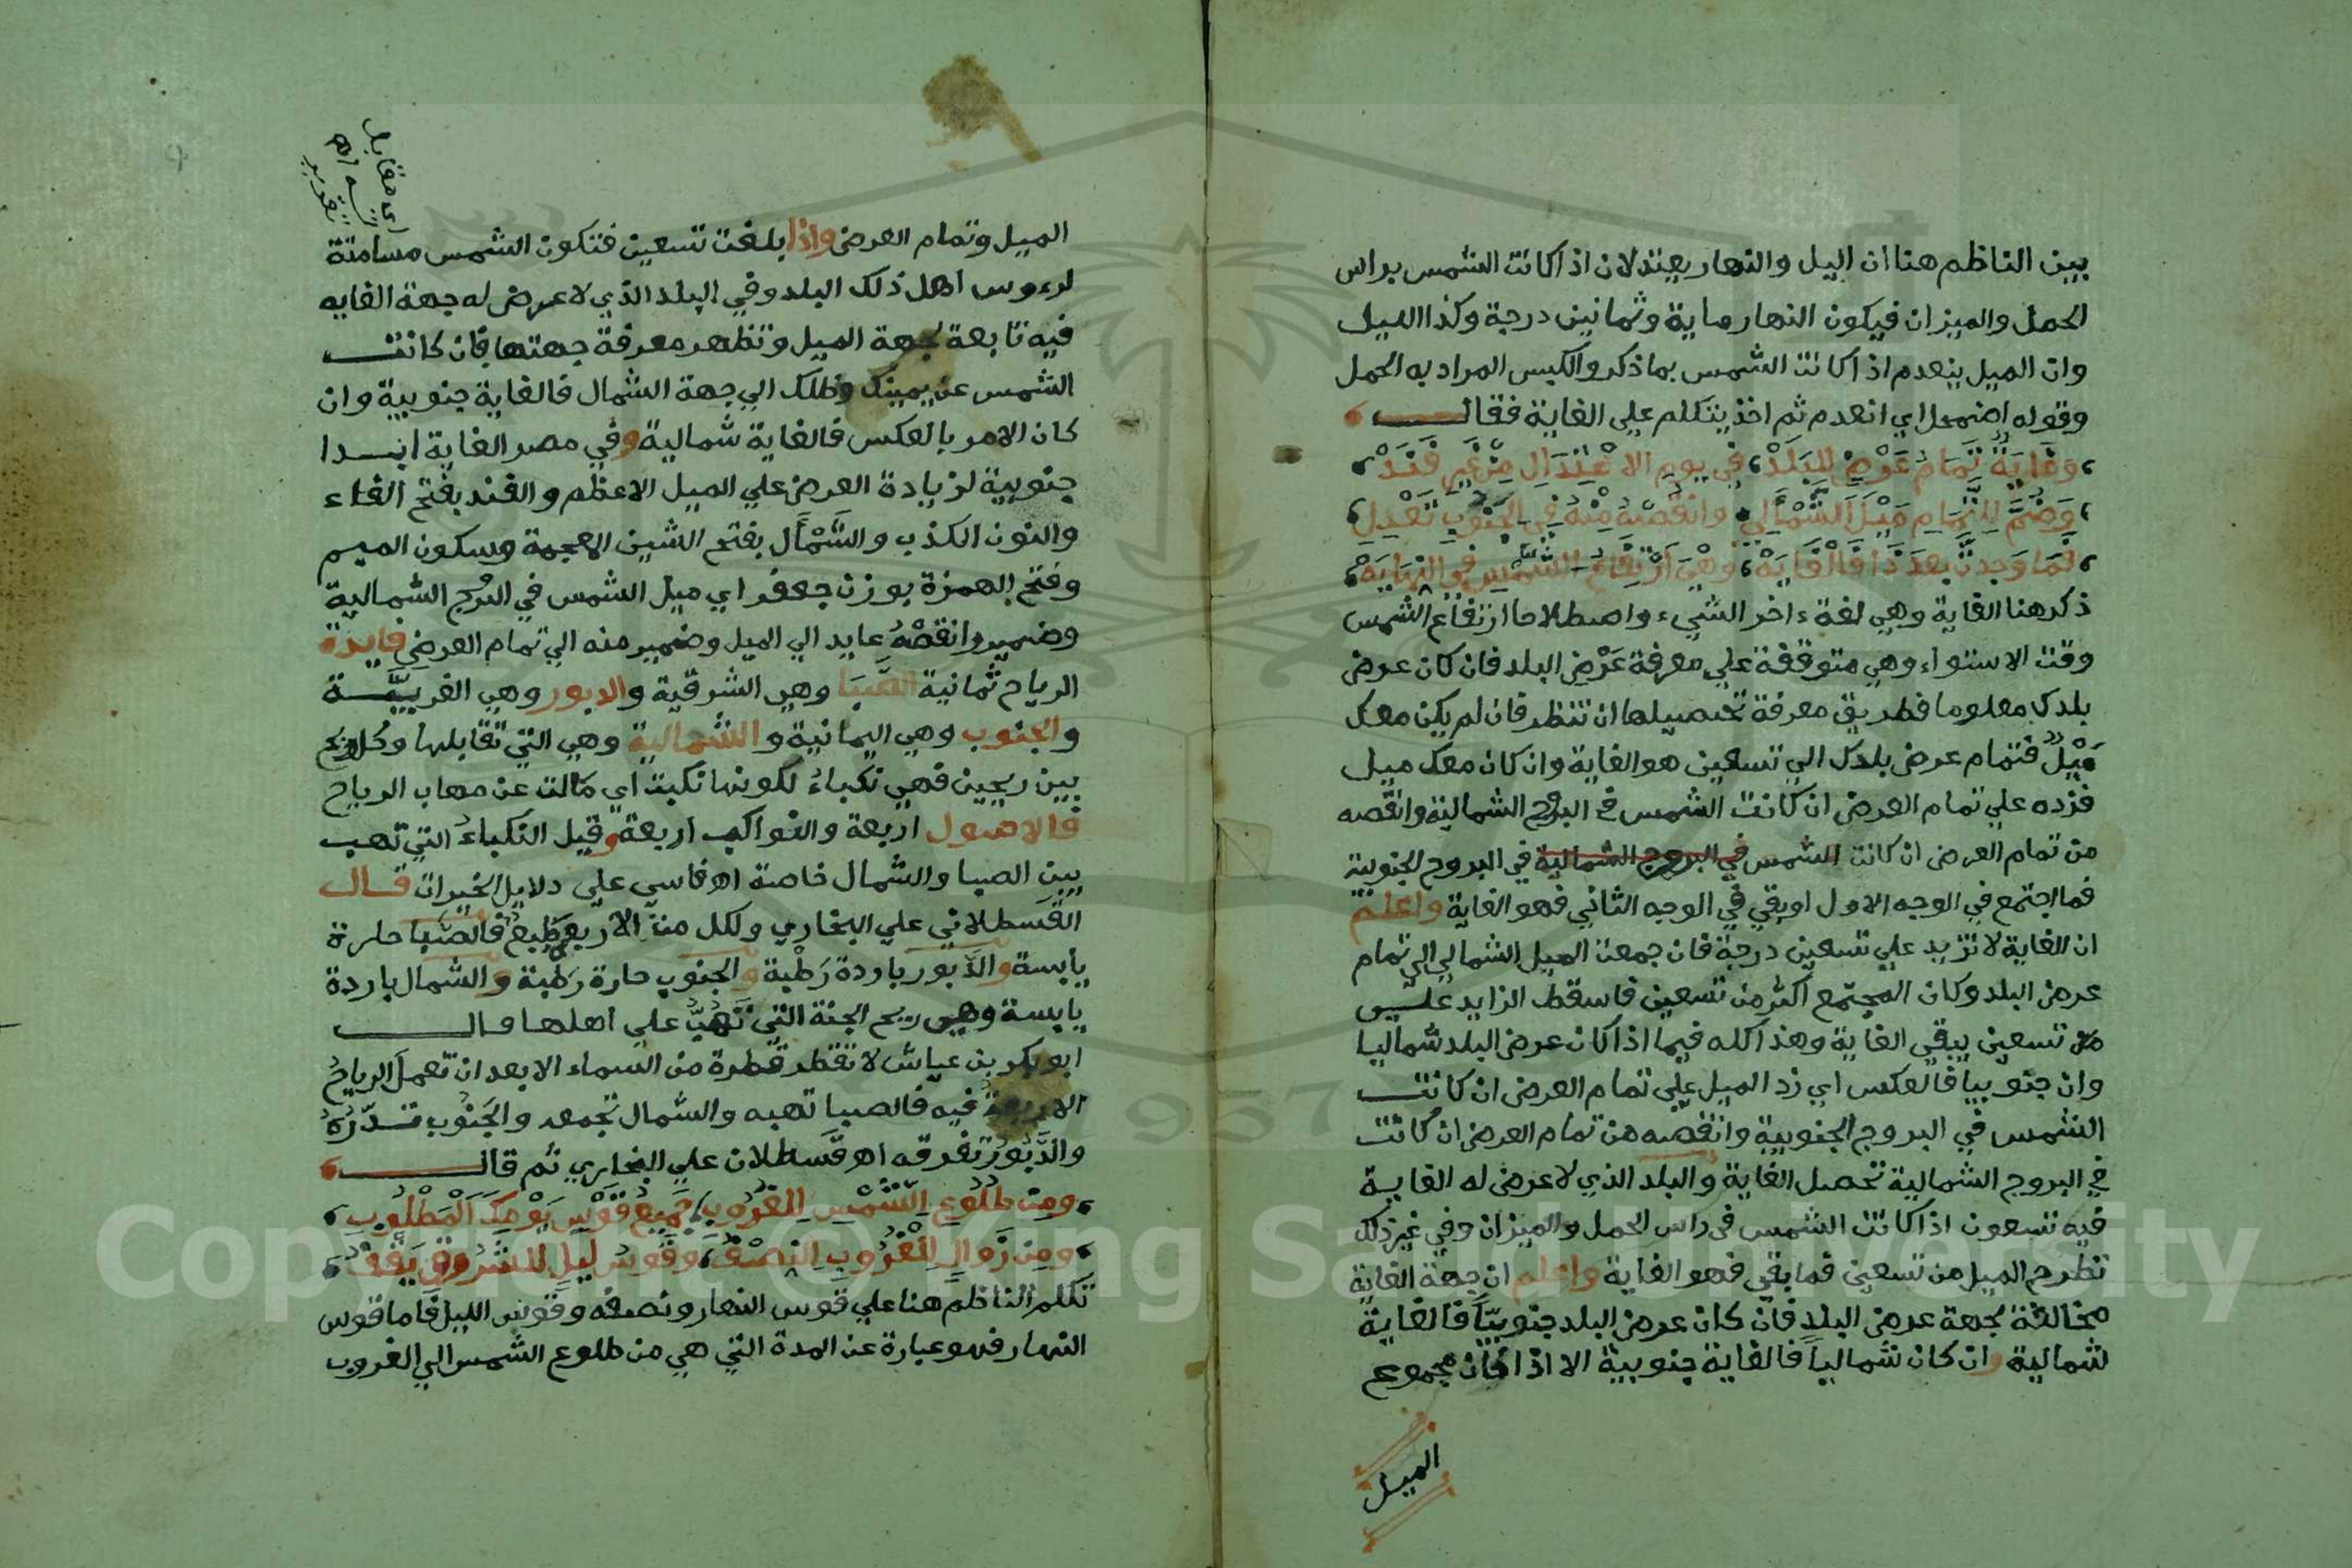 بين الناظم هنا ان اليل والنهار يعتدلان اذا كانت الشمس براس
الحمل والميزان فيكون النهار ماية وثمانين درجة وكذا الليل
وان الميل ينعدم اذا كانت الشمس بما ذكر والكبس المراد به الحمل
وقوله اضمحل اي انعدم ثم اخذ يتكلم علي الغاية فقال
وَغَايَةٌ تَمَامُ عَرْضٍ لِلبَلَدْ في يوم الاعْتِدَالِ مِنْ غَيْرِ فَنَدْ
وَضُمَّ لِلتَّمَامِ مَيْلَ الشَّمْأَلِ وانقُصْهُ مِنْهُ في الجَنُوبِ تَعْدِلِ
فَمَا وَجَدتَّ بعدَ ذَا فَالْغَايَهْ وَهْيَ ارْتِفَاعُ الشَّمْسِ في النِّهَايَهْ
ذكر هنا الغاية وهي لغة ءاخر الشيء واصطلاحا ارتفاع الشمس
وقت الاستواء وهي متوقفة علي معرفة عَرْضِ البلد فان كان عرض
بلدك معلوما فطريق معرفة تحصيلها ان تنظر فان لم يكن معك
مَيْلٌ فتمام عرض بلدك الي تسعين هو الغاية وان كان معك ميل
فزده علي تمام العرض ان كانت الشمس في البروج الشمالية وانقصه
من تمام العرض ان كانت الشمس في البروج الشمالية في البروج الجنوبية
فما اجتمع في الوجه الاول او بقي في الوجه الثاني فهو الغاية واعلم
ان الغاية لا تزيد علي تسعين درجة فان جمعت الميل الشمالي الي تمام
عرض البلد وكان المجتمع اكثر من تسعين فاسقط الزايد علي
من تسعين يبقي الغاية وهذا كله فيما اذا كان عرض البلد شماليا
وان جنوبيا فالعكس اي زد الميل علي تمام العرض ان كانت
الشمس في البروج الجنوبية وانقصه من تمام العرض ان كانت
في البروج الشمالية تحصل الغاية والبلد الذي لا عرض له الغاية
فيه تسعون اذا كانت الشمس في راس الحمل والميزان وفي غير ذلك
تطرح الميل من تسعين فما بقي فهو الغاية واعلم ان جهة الغاية
مخالفة لجهة عرض البلد فان كان عرض البلد جنوبيّاً فالغاية
شمالية وان كان شمالياً فالغاية جنوبية الا اذا كان مجموع
الميل
الميل وتمام العرض واذا بلغت تسعين فتكون الشمس مسامتة
لرءوس اهل ذلك البلد وفي البلد الذي لا عرض له جهة الغايه
فيه تابعة لجهة الميل وتظهر معرفة جهتها فان كانت
الشمس عن يمينك وظلك الي جهة الشمال فالغاية جنوبية وان
كان الامر بالعكس فالغاية شمالية وفي مصر الغاية ابدا
جنوبية لزيادة العرض علي الميل الاعظم والفند بفتح الفاء
والنون الكذب والشَّمْأَل بفتح الشين المعجمة وسكون الميم
وفتح الهمزة بوزن جعفر اي ميل الشمس في البرج الشمالية
وضمير وانقصْهُ عايد الي الميل وضمير منه الي تمام العرض فايدة
الرياح ثمانية الصَّبَا وهي الشرقية والدبور وهي الغربيَّة
والجنوب وهي اليمانية والشمالية وهي التي تقابلها وكل ريح
بين ريحين فهي نكباءُ لكونها نكبت اي مَالت عن مهاب الرياح
فالاصول اربعة والنواكب اربعة وقيل النكباءُ التي تهب
بين الصبا والشمال خاصة اه فاسي علي دلايل الخيرات قال
القسطلاني علي البخاري ولكل من الاربع طبع فالصبا حارة
يابسة والدَّبور باردة رَطْبة والجنوب حارة رَطْبة والشمال باردة
يابسة وهي ريح الجنة التي تَهُبُّ علي اهلها قال
ابو بكر بن عياش لا تقطر قطرة من السماء الا بعد ان تعمل الرياحُ
الاربعة فيه فالصبا تهبه والشمال تجمعه والجَنُوب تدّرُهُ
والدَّبُورُ تفرقه اه قَسطلان علي البخاري ثم قال
ومِنْ طُلُوعِ الشَّمْسِ لِلغُرُوبِ جَمِيعُ قَوْسِ يَوْمِكَ الْمَطْلُوبِ
ومِن زَوَالٍ لِلْغُرُوبِ النِصْفُ وَقَوسُ لَيلٍ للشُرُوقِ يَقْفُ
تكلم الناظم هنا علي قوس النهار ونصفه وقوس الليل فاما قوس
النهار فهو عبارة عن المدة التي هي من طلوع الشمس الي الغروب
Copyright © King Saud University
1957